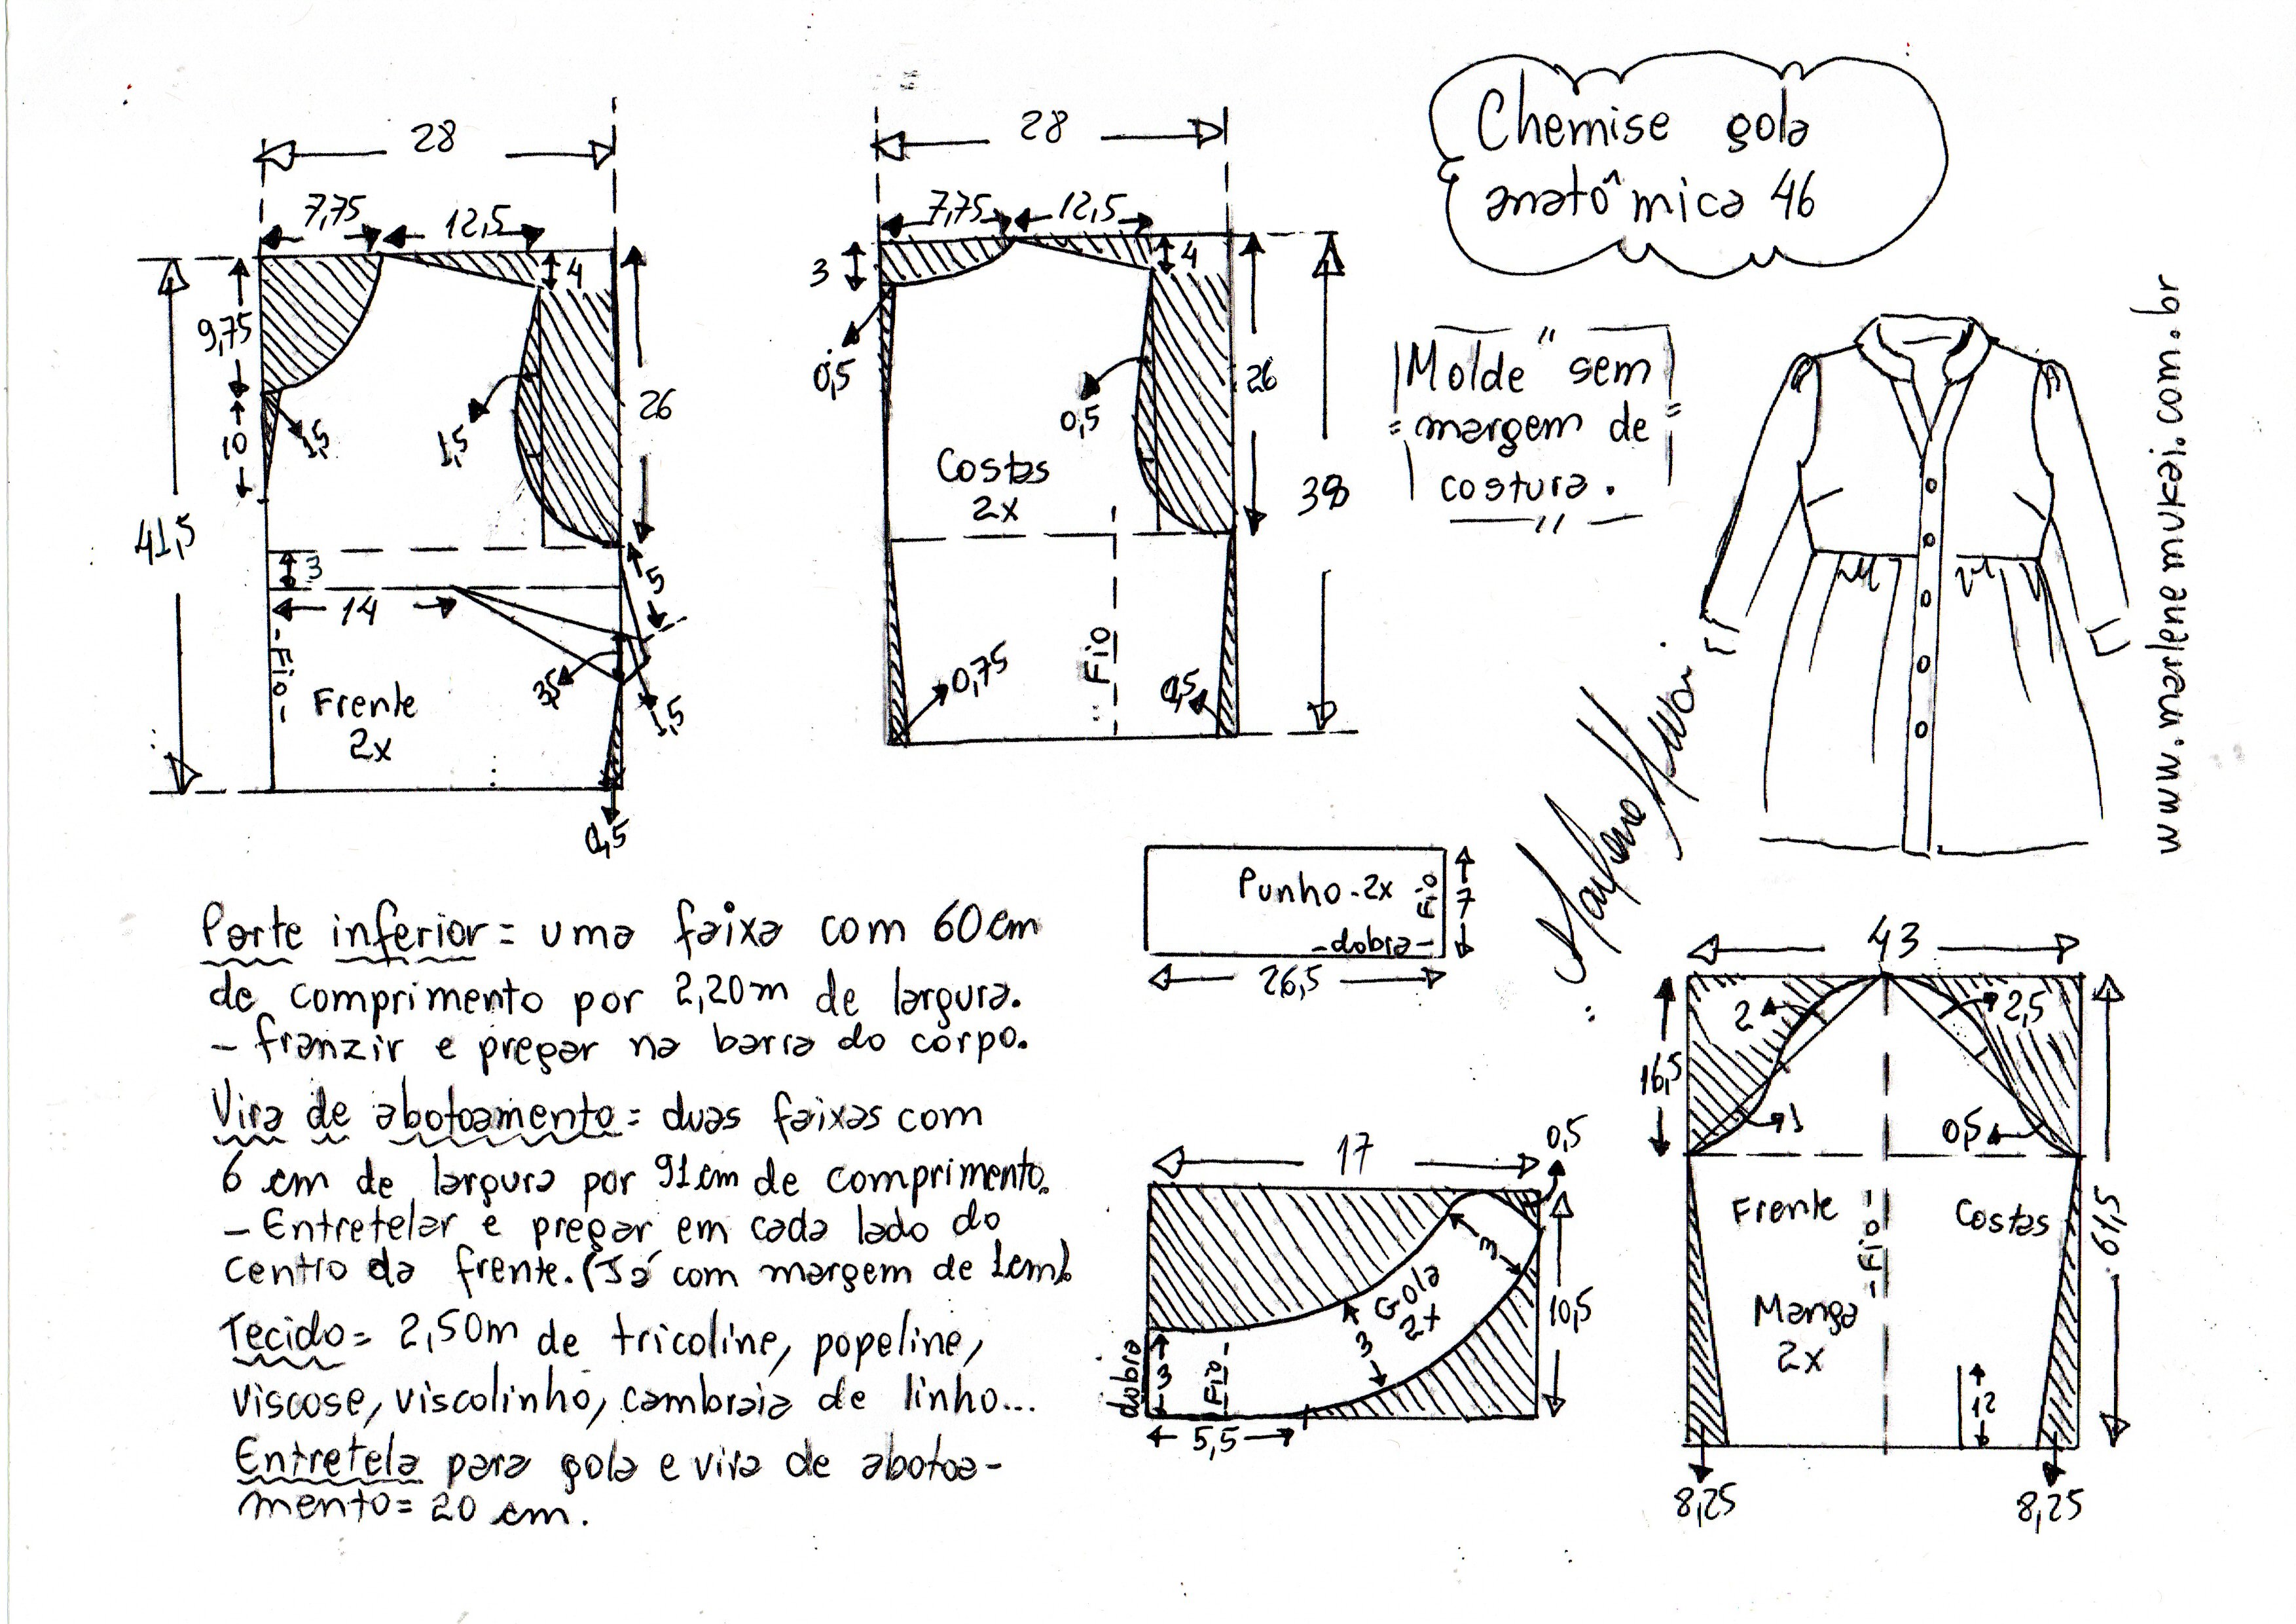 Chemise gola
anatômica 46
"Molde" sem
margem de
costura.
www.marlenemukai.com.br
Marlene Mukai
28
7,75
12,5
4
9,75
10
1,5
1,5
26
41,5
3
14
5
3,5
1,5
-Fio-
Frente
2x
0,5
28
7,75
12,5
3
4
0,5
0,5
26
38
Costas
2x
Fio
0,75
0,5
Punho-2x
Fio
7
-dobra-
26,5
17
0,5
3
Gola
2x
3
10,5
dobra
3
Fio-
5,5
43
2
2,5
16,5
1
0,5
61,5
Frente
-Fio-
Costas
Manga
2x
12
8,25
8,25
Parte inferior = uma faixa com 60cm
de comprimento por 2,20m de largura.
- franzir e pregar na barra do corpo.
Vira de abotoamento = duas faixas com
6 cm de largura por 91cm de comprimento.
- Entretelar e pregar em cada lado do
centro da frente. (Já com margem de 1cm).
Tecido = 2,50m de tricoline, popeline,
viscose, viscolinho, cambraia de linho...
Entretela para gola e vira de abotoa-
mento = 20 cm.